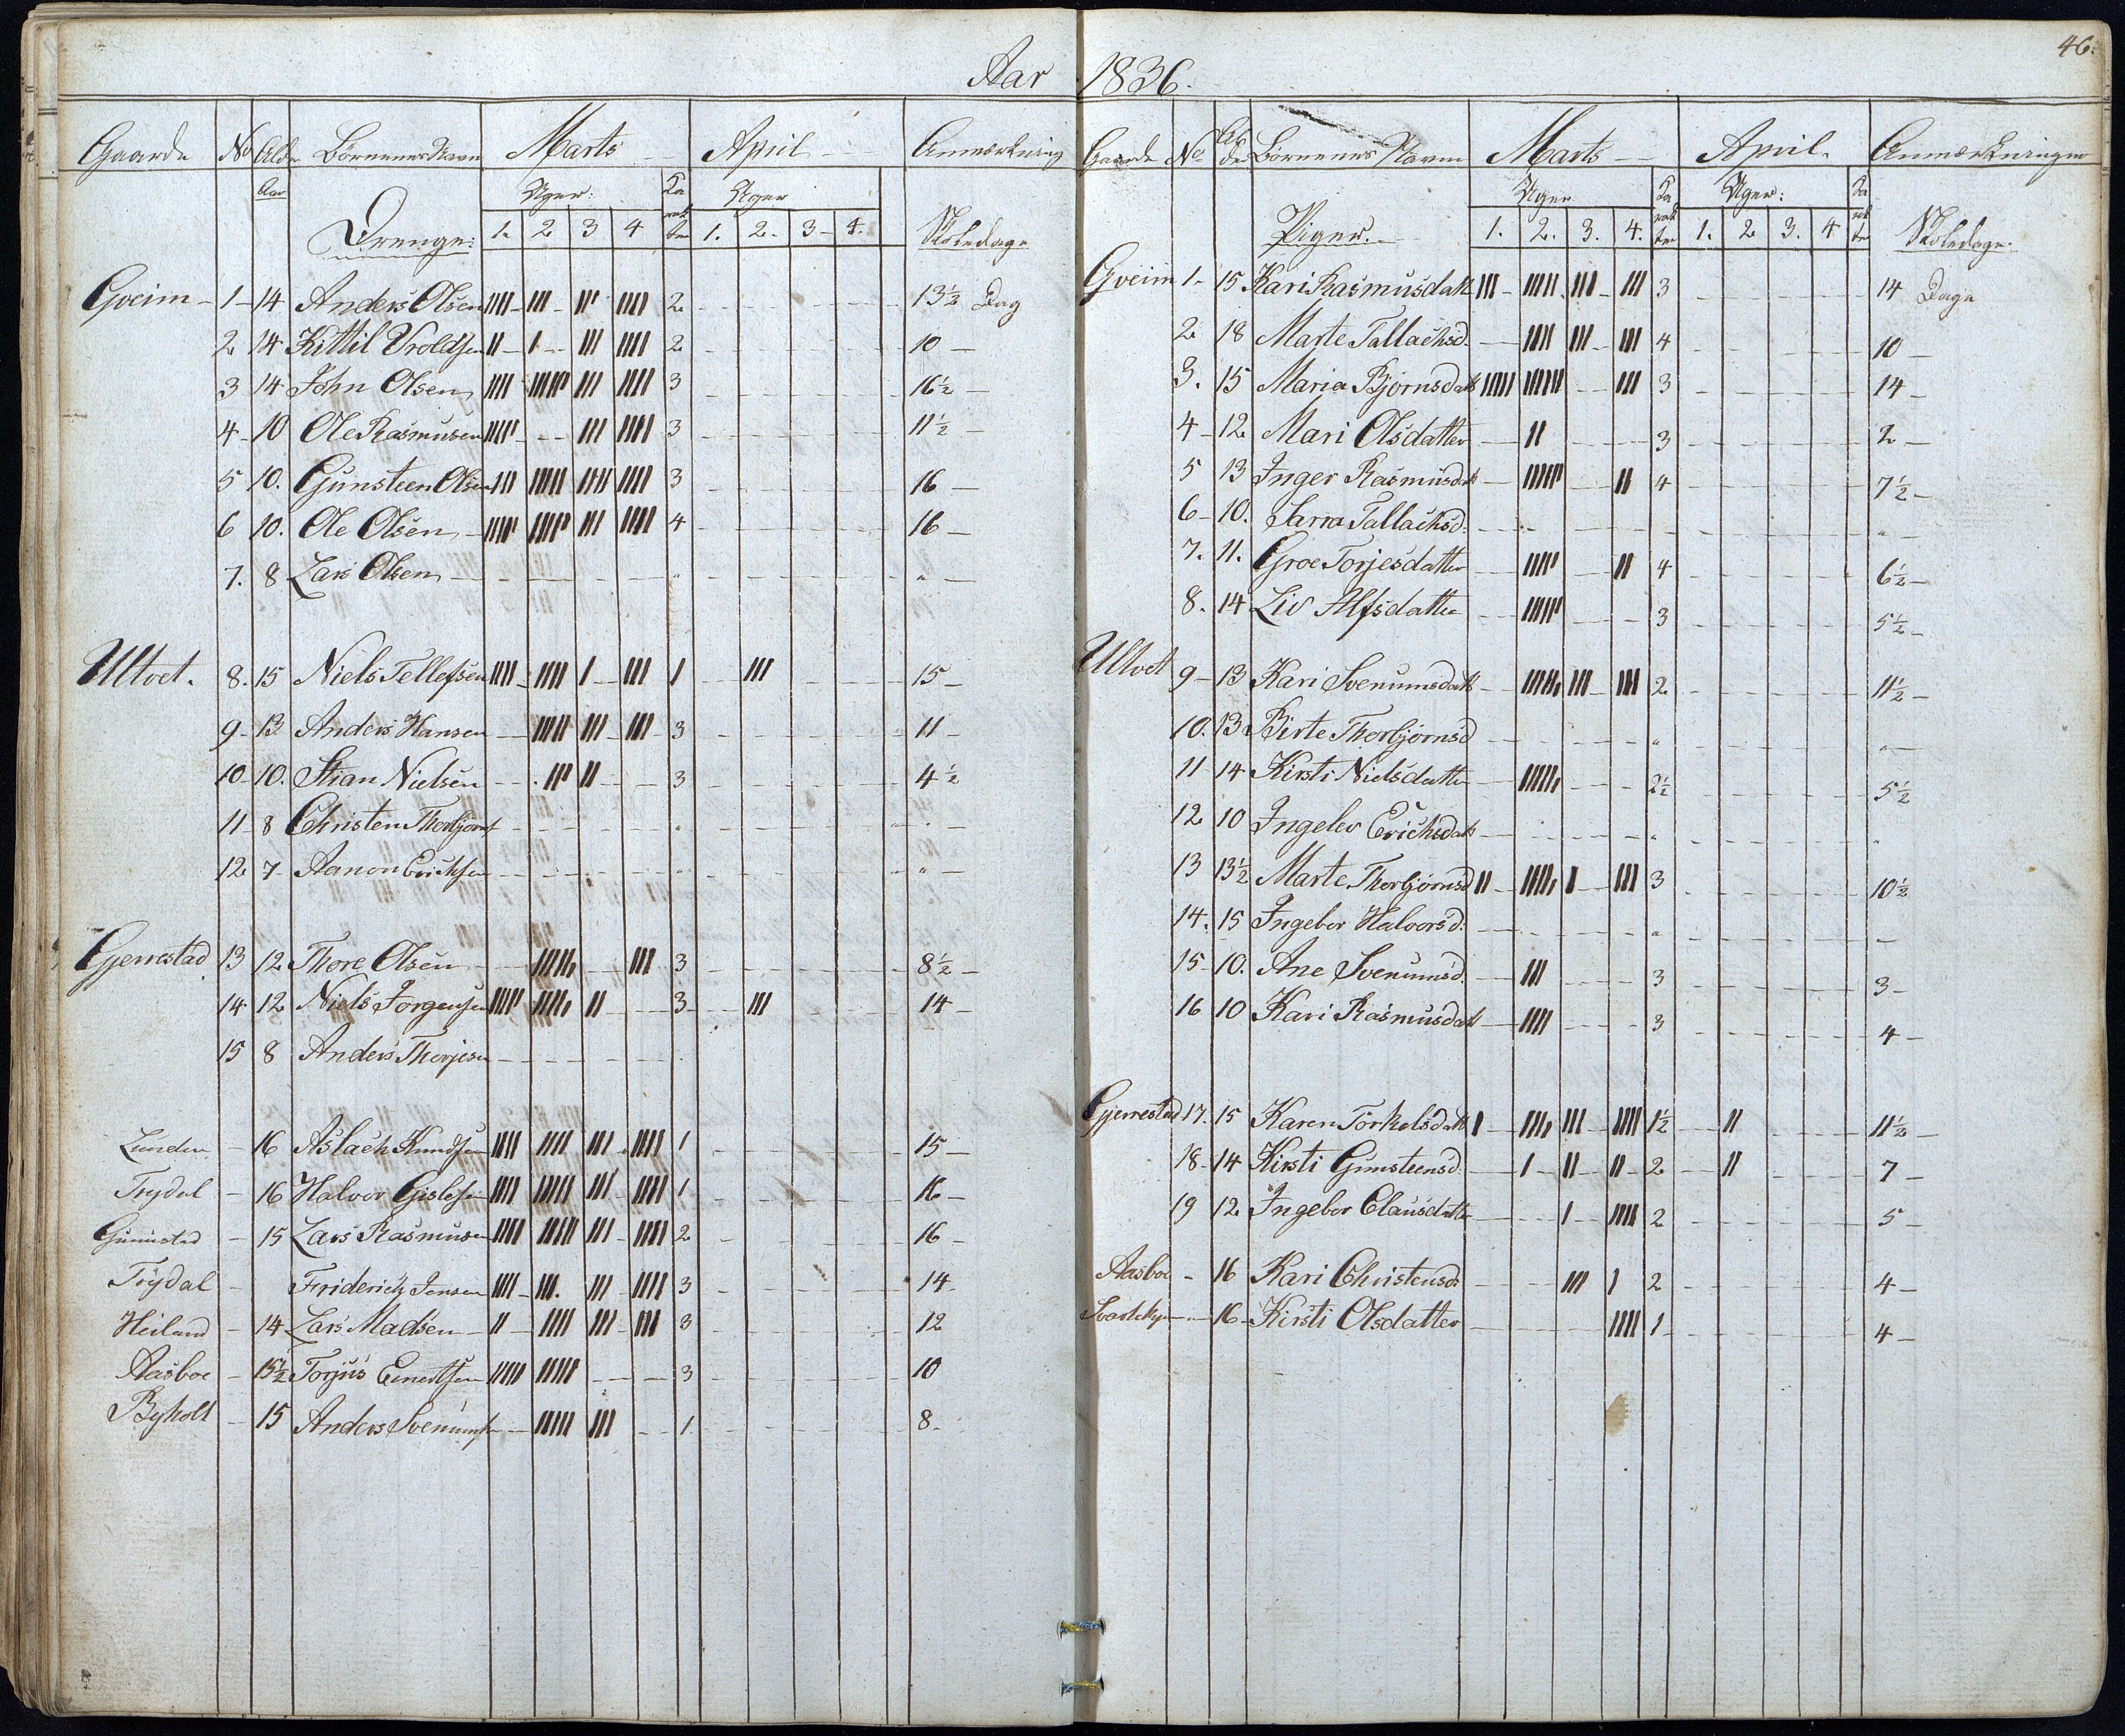 Aar 1836.
46.
Gaarde No Alder Børnenes Navn Marts April Anmærkning
Aar Uger: Ka rak ter Uger
Drenge: 1. 2 3 4 1. 2. 3 4. Skoledage
Gveim 1 14 Anders Olsen IIII III II' IIII 2 13½ Dag
2 14 Kittil Uroldsen II I III IIII 2 10
3 14 John Olsen IIII IIIII' III IIII 3 16½
4 10 Ole Rasmusen IIII' III IIII 3 11½
5 10. Gunsteen Olsen III IIIII IIII IIII 3 16
6 10. Ole Olsen IIII' IIII' III IIII 4 16
7. 8 Lars Olsen " "
Ultvet. 8. 15 Niels Tellefsen IIII IIII I III 1 III 15
9 13 Anders Hansen IIIII III III 3 11
10 10. Stian Nielsen II' II 3 4½
11 8 Christen Thorbjørns " "
12 7 Aanon Erichsen " "
Gjerrestad 13 12 Thore Olsen IIIII' III 3 8½
14 12 Niels Jorgensen IIII' IIII' II 3 III 14
15 8 Anders Thorjesen
Lunden 16 Aslach Knudsen IIII IIII III IIII 1 15
Trydal 16 Halvor Gislefsen IIII IIIII III IIII 1 16
15 Lars Rasmusen IIII IIIII III IIII 2 16
Trydal Friderich Jensen IIII III. III IIII 3 14.
Heiland 14 Lars Madsen II IIII III III 3 12
Aasboe 15½ Torjus Enertsen IIIII IIIII 3 10
Ryholt 15 Anders Svenums IIIII III 1 8
Gaarde No Al der Børnenes Navne Marts April. Anmærkninger
Uger Ka rak ter Uger: Ka rak ter
Piger. 1. 2. 3. 4. 1. 2 3. 4 Skoledage.
Gveim 1 15 Kari Rasmusdatt III IIII III III 3 14 Dage
2 18 Marte Tallachsd. IIII III III 4 10
3. 15 Maria Bjørnsdatt IIIII IIIII III 3 14
4 12 Mari Olsdatter II 3 2
5 13 Inger Rasmusdatt IIIII' II 4 7½
6 10. Sarra Tallachsd. "
7. 11. Groe Torjesdatter IIII' II 4 6½
8. 14 Liv Alfsdatter IIIII' 3 5½
Ultvet 9 13 Kari Svenumsdatt IIIII' III III 2 11½
10. 13 Birte Thorbjørnsd " "
11 14 Kirsti Nielsdatter IIIII' 2½ 5½
12 10 Ingelev Erichsdatt " "
13 13½ Marte Thorbjørnsd II IIII' I III 3 10½
14. 15 Ingebor Halvorsd. "
15 10. Ane Svenumsd. III 3 3
16 10 Kari Rasmusdatt IIII 3 4
Gjerrestad 17. 15 Karen Torkelsdatt I IIII' III IIII 1½ II 11½
18 14 Kirsti Gunsteensd. I II II 2 II 7
19 12 Ingebor Clausdatter I IIII 2 5
Aasboe 16 Kari Christensd III I 2 4
16 Kirsti Olsdatter IIII 1 4